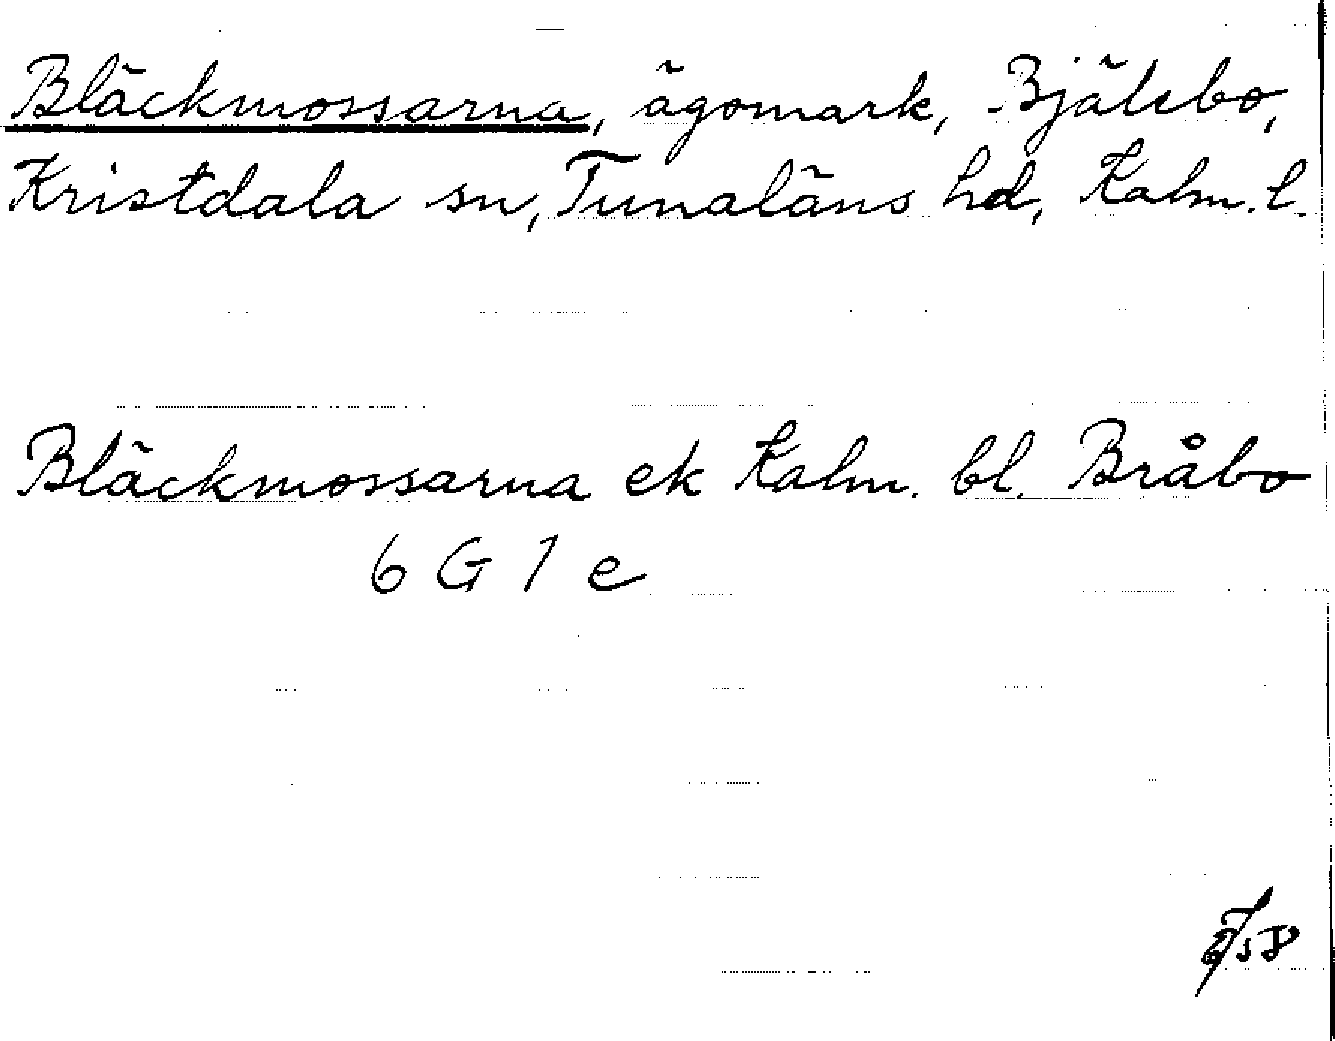 Bläckmossarna, ägomark, Bjälebo,
Kristdala sn, Tunaläns hd, Kalm. l.
Bläckmossarna ek Kalm. bl. Bråbo
6 G 1 e